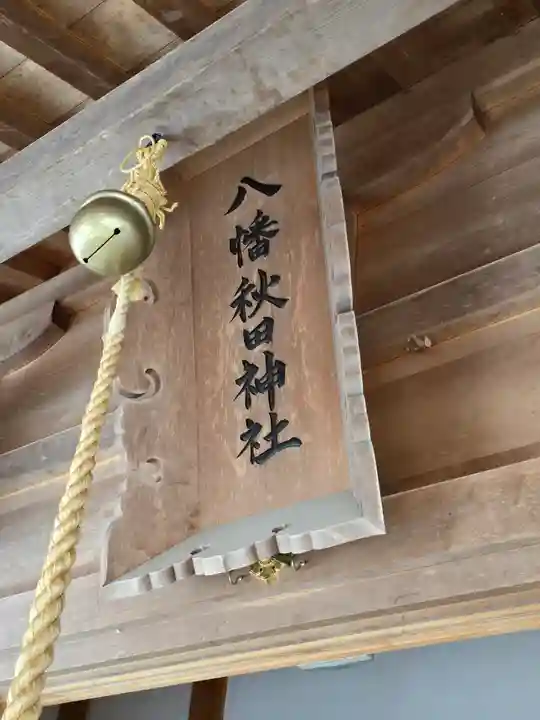 八幡秋田神社